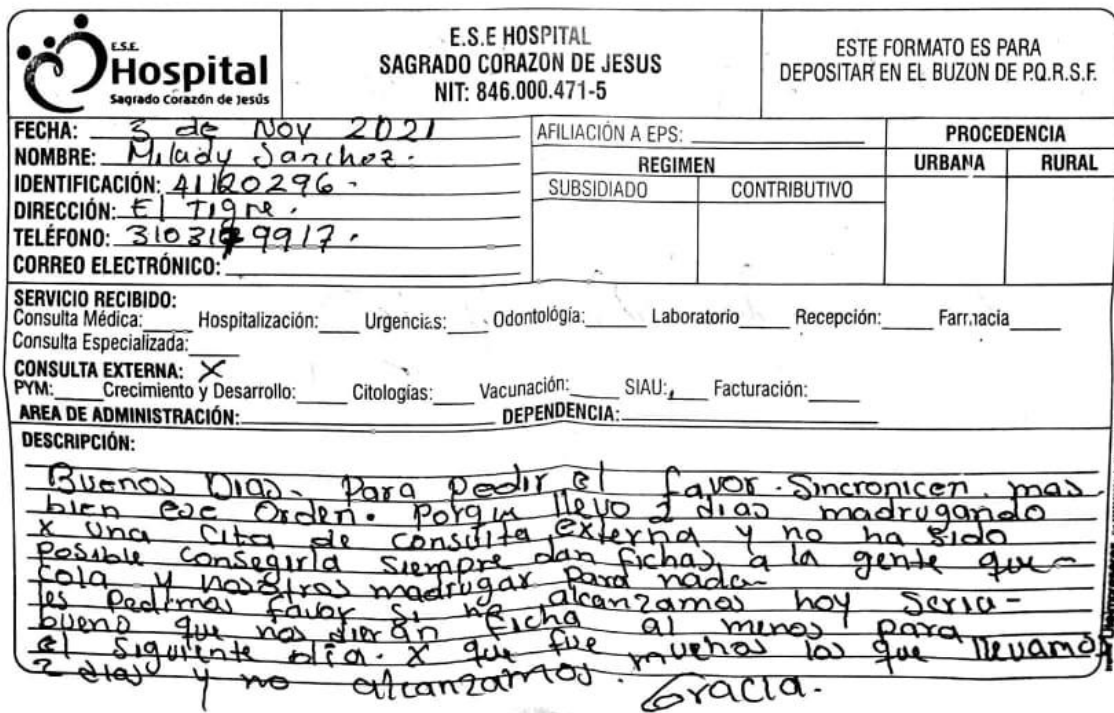 E.S.E.
Hospital
Sagrado Corazón de Jesús
E.S.E HOSPITAL
SAGRADO CORAZON DE JESUS
NIT: 846.000.471-5
ESTE FORMATO ES PARA
DEPOSITAR EN EL BUZON DE P.Q.R.S.F.
FECHA: 3 de Nov 2021
NOMBRE: Milady Sanchez.
IDENTIFICACIÓN: 41120296.
DIRECCIÓN: El Tigre.
TELÉFONO: 9917.
CORREO ELECTRÓNICO:
AFILIACIÓN A EPS:
REGIMEN
SUBSIDIADO CONTRIBUTIVO
PROCEDENCIA
URBANA RURAL
SERVICIO RECIBIDO:
Consulta Médica: Hospitalización: Urgencias: Odontológia: Laboratorio Recepción: Farmacia
Consulta Especializada:
CONSULTA EXTERNA: X
PYM: Crecimiento y Desarrollo: Citologías: Vacunación: SIAU: Facturación:
AREA DE ADMINISTRACIÓN: DEPENDENCIA:
DESCRIPCIÓN:
Buenos Dias. Para pedir el favor. Sincronicen mas
bien ese Orden. Porque llevo 2 dias madrugando
x una Cita de consulta externa y no ha sido
posible conseguirla siempre dan fichas a la gente que
cola y nosotros madrugar para nada
les pedimos favor si no alcanzamos hoy seria
bueno que nos dieran ficha al menos para
el siguiente dia. x que fue muchos los que llevamos
2 dias y no alcanzamos. Gracia.